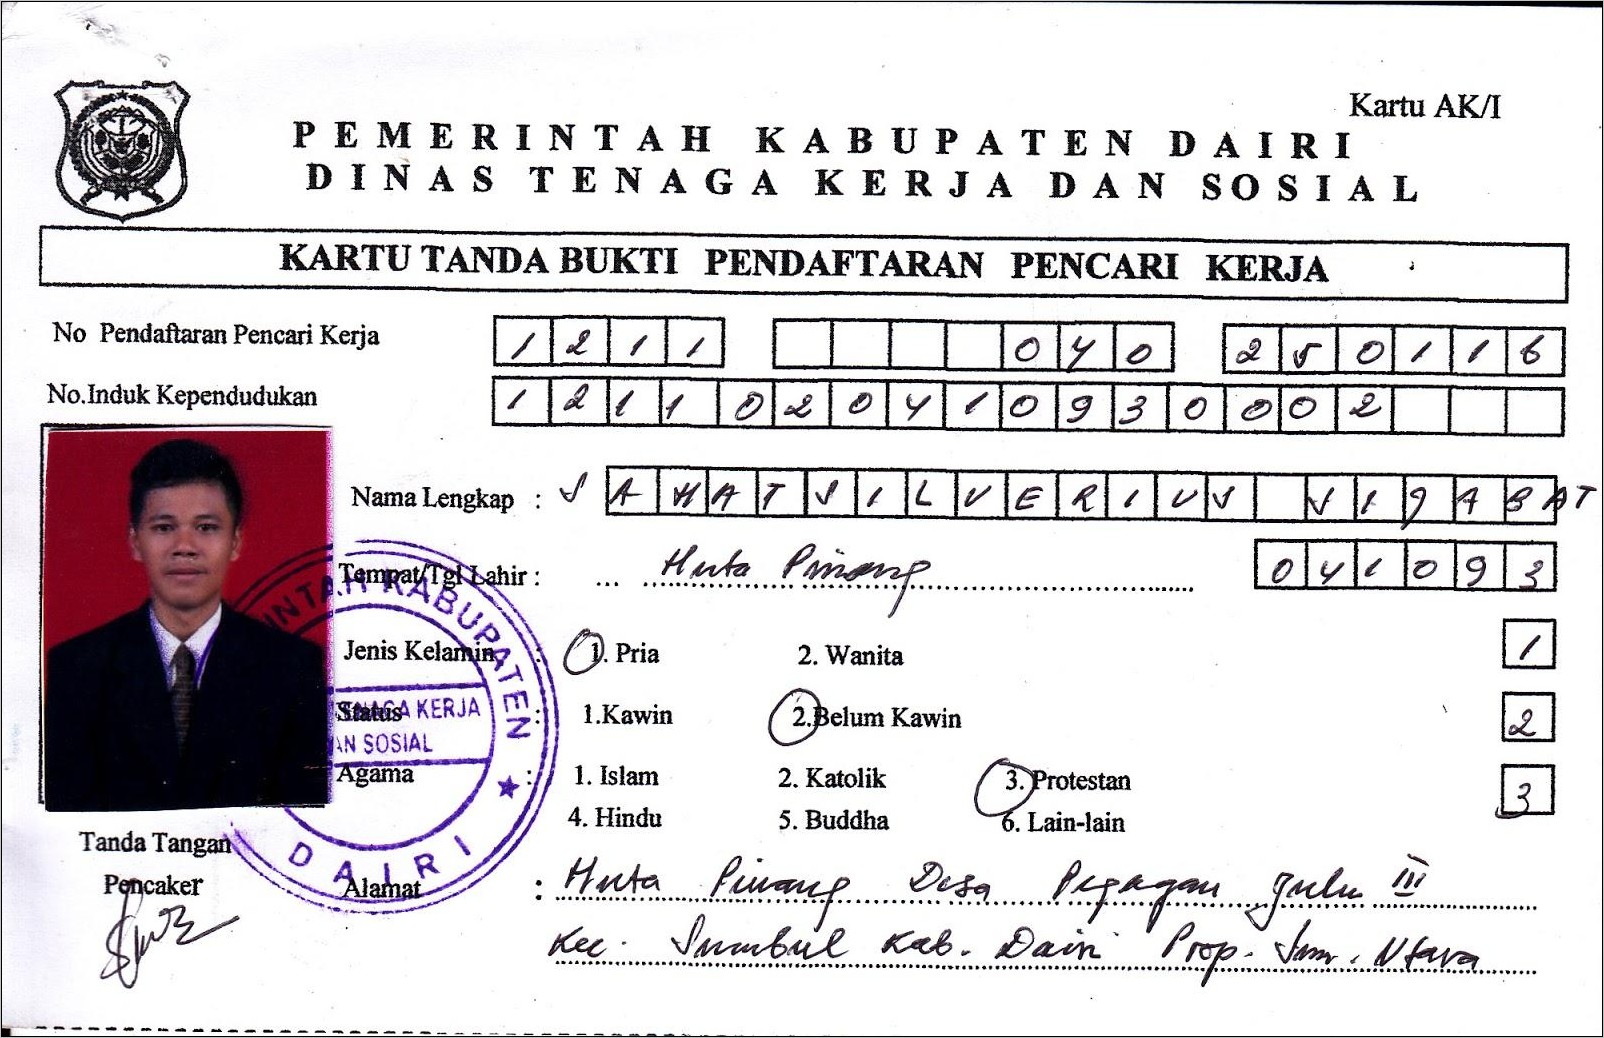 Kartu AK/I
PEMERINTAH KABUPATEN DAIRI
DINAS TENAGA KERJA DAN SOSIAL
KARTU TANDA BUKTI PENDAFTARAN PENCARI KERJA
No Pendaftaran Pencari Kerja 1211 040 250116
No.Induk Kependudukan 1211020410930002
Nama Lengkap : SAHAT SILVERIUS SIGABAT
Tempat/Tgl Lahir : Huta Pinang 041093
Jenis Kelamin : 1. Pria 2. Wanita 1
Status : 1.Kawin 2.Belum Kawin 2
Agama : 1. Islam 2. Katolik 3. Protestan 3
4. Hindu 5. Buddha 6. Lain-lain
Tanda Tangan
Pencaker
Alamat : Huta Pinang Desa Pegagan Julu III
Kec. Sumbul Kab. Dairi Prop. Sum. Utara
INTAH KABUPATEN
TENAGA KERJA
AN SOSIAL
DAIRI